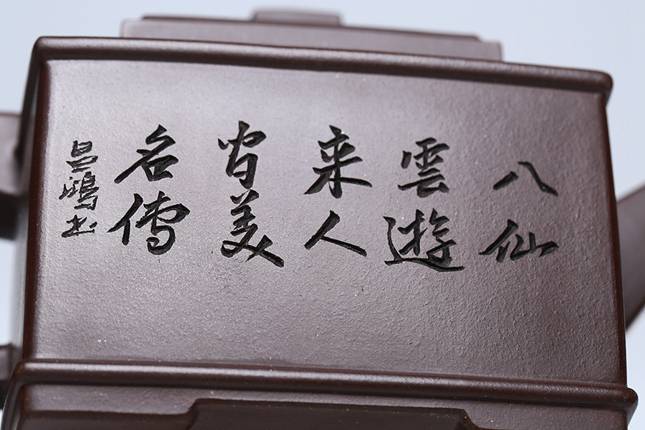 八仙
雲遊
来人
皆美
名傳
昌鴻书